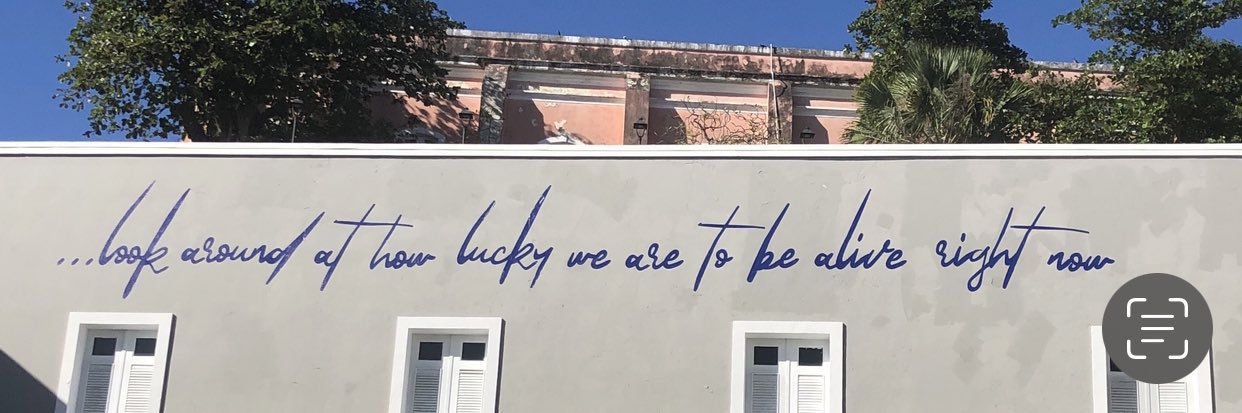 ...look around at how lucky we are to be alive right now